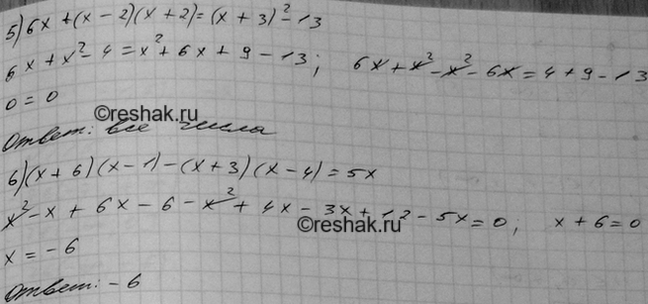 5) 6x + (x - 2)(x + 2) = (x + 3)² - 13
6x + x² - 4 = x² + 6x + 9 - 13; 6x + x² - x² - 6x = 4 + 9 - 13
0 = 0
©reshak.ru
Ответ: все числа
6) (x + 6)(x - 1) - (x + 3)(x - 4) = 5x
x² - x + 6x - 6 - x² + 4x - 3x + 12 - 5x = 0; x + 6 = 0
©reshak.ru
x = -6
Ответ: -6